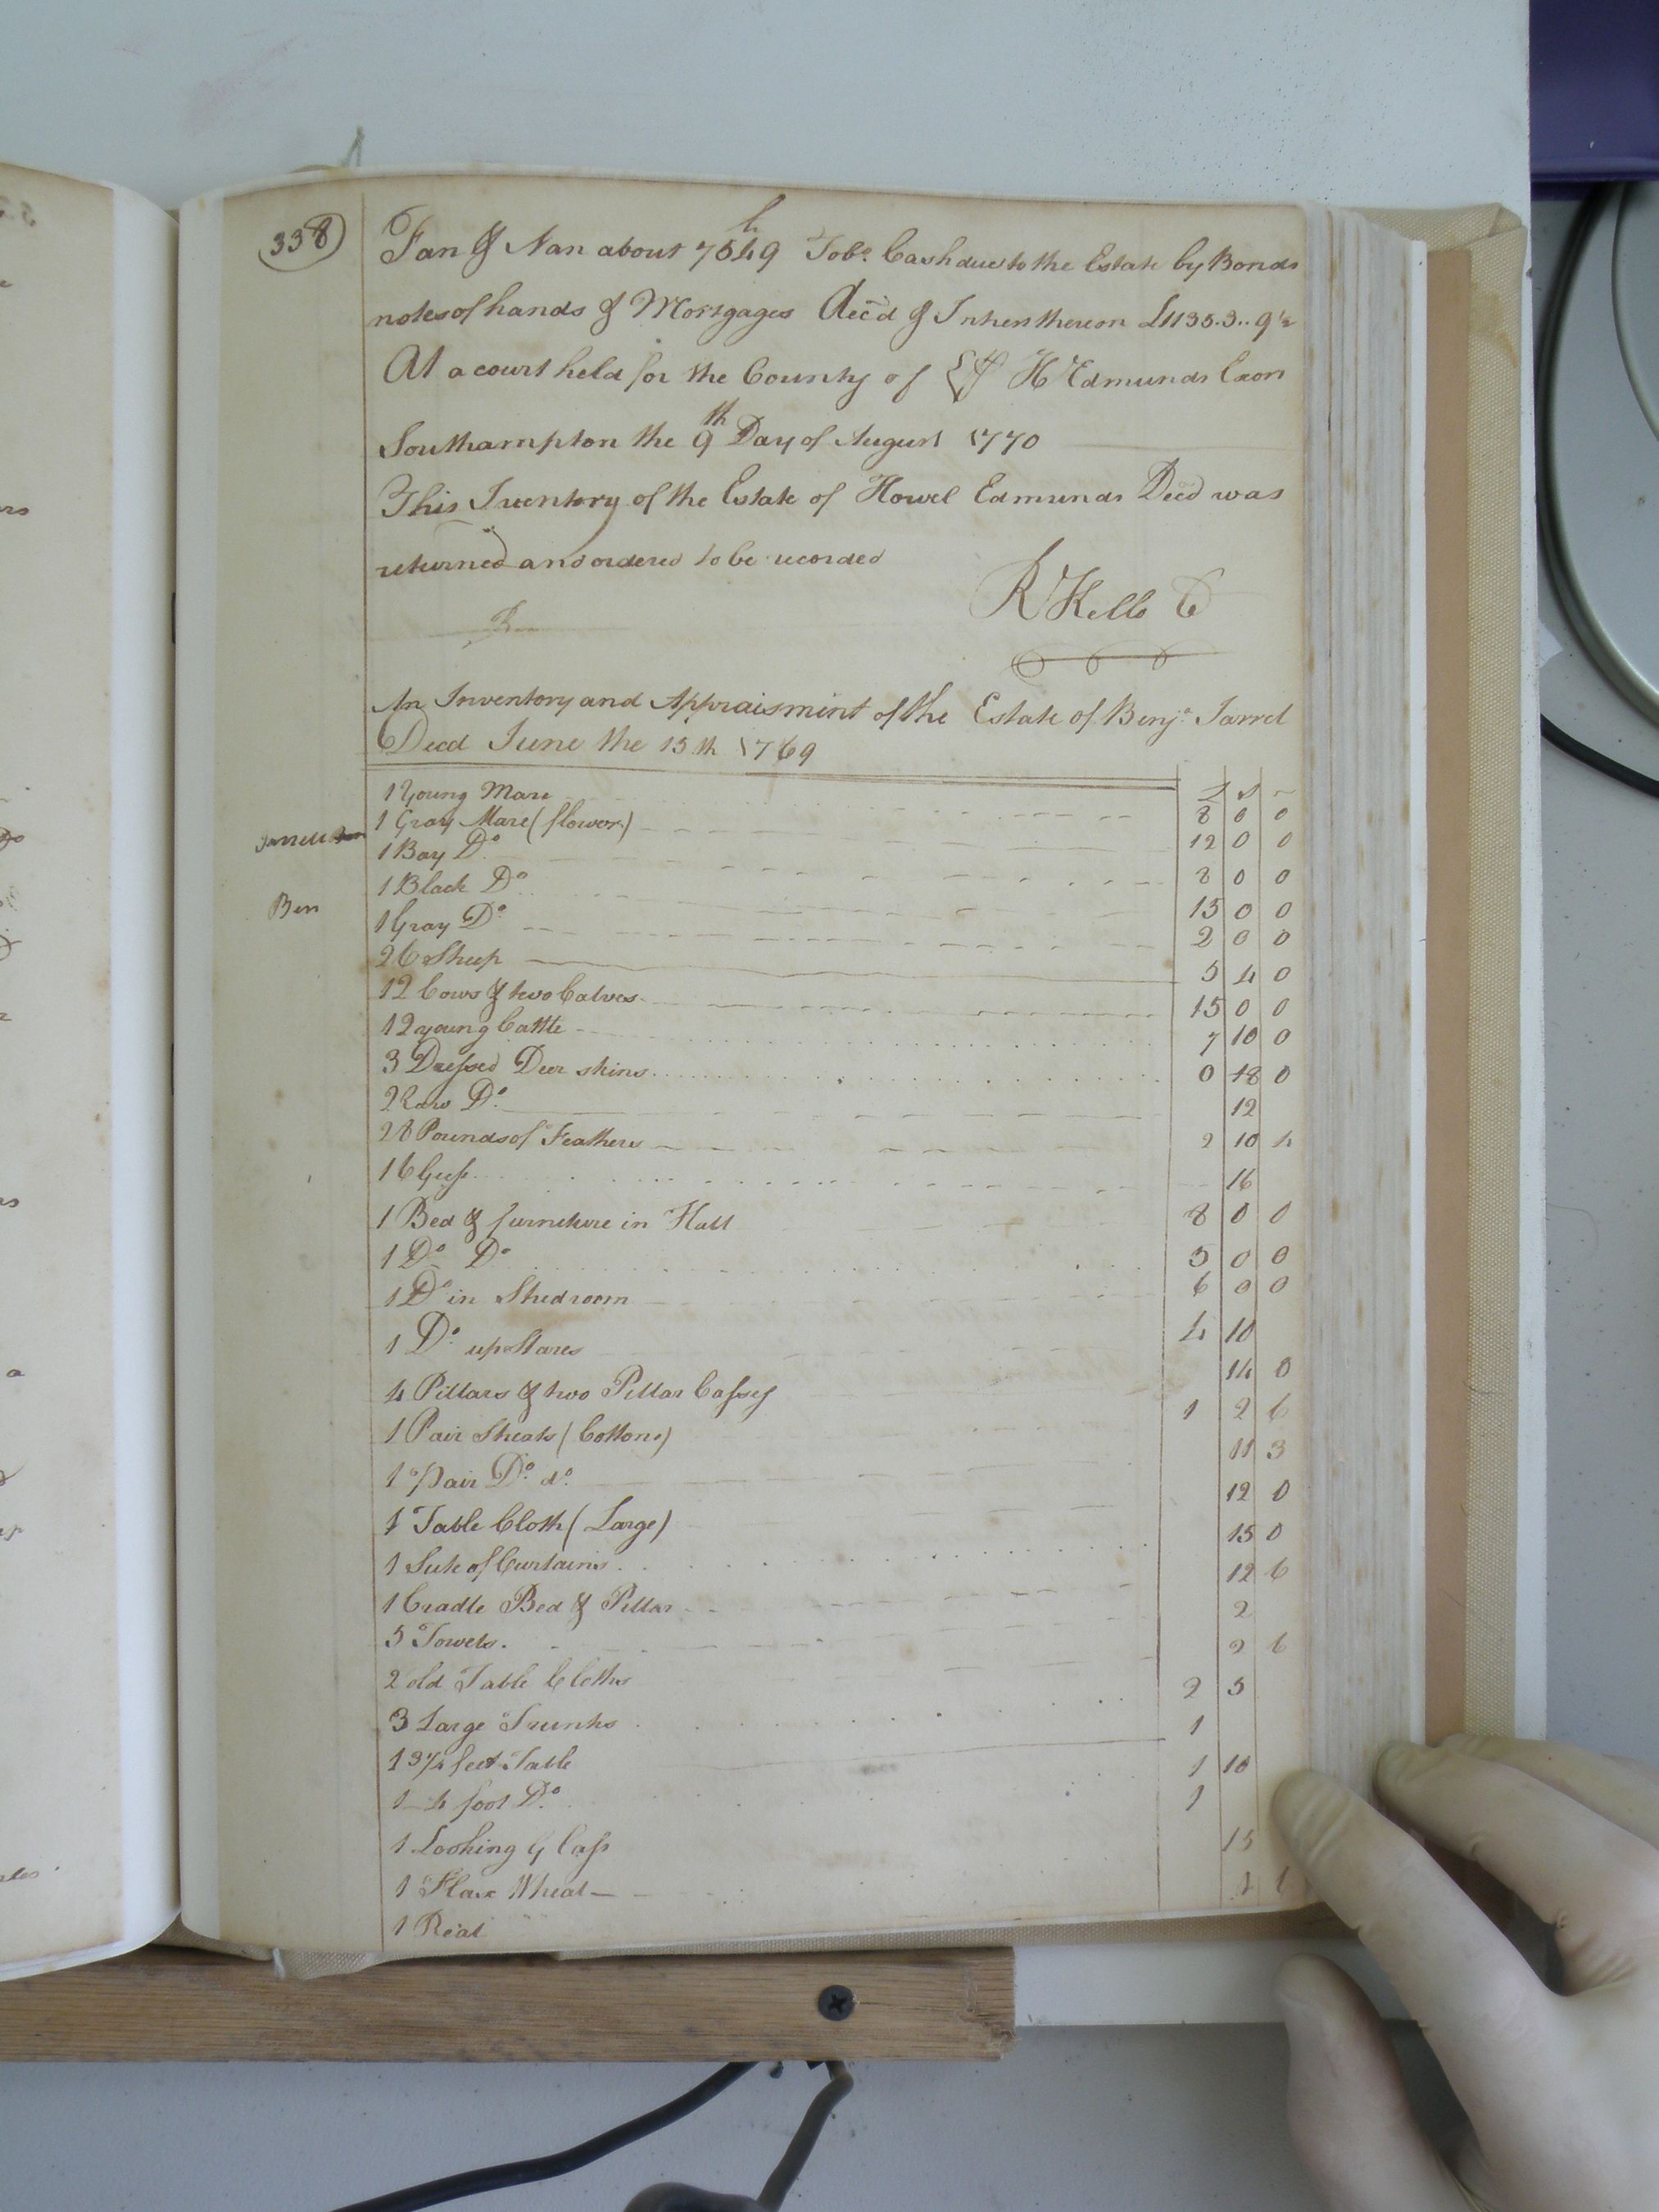 338
Fan & Nan about 7549 Tobo. Cash due to the Estate by Bonds
notes of hands & Mortgages Acc'd & Intrest thereon £1135.3..9½
At a court held for the County of H Edmunds Exor
Southampton the 9th Day of August 1770
This Inventory of the Estate of Howel Edmunds Decd was
returned and ordered to be recorded
R Kello C
An Inventory and Appraisment of the Estate of Benja. Jarrel
Decd June the 15th 1769
1 Young Mare
1 Gray Mare (flower) 8 0 0
Jarrell
1 Bay Do. 12 0 0
1 Black Do 8 0 0
Ben
1 Gray Do 15 0 0
26 Sheep 2 0 0
12 Cows & two Calves 5 4 0
12 young Cattle 15 0 0
3 Dressed Deer skins 7 10 0
2 Raw Do. 0 18 0
28 Pounds of Feathers 12
16 Geese 2 10 4
16
1 Bed & furneture in Hall 8 0 0
1 Do Do 5 0 0
1 Do in Shed room 6 0 0
1 Do. up Stares 4 10
4 Pillars & two Pillar Cassess 14 0
1 Pair Sheats (Cotton) 1 2 6
1 pair Do. do. 11 3
1 Table Cloth (Large) 12 0
1 Sute of Curtains 15 0
1 Cradle Bed & Pillar 12 6
5 Towels. 2
2 old Table Cloths 2 6
3 Large Trunks 2 5
1 3¾ feet Table 1
1 4 foot Do. 1 10
1 Looking Glass 1
1 Flax Wheal 15
1 Real